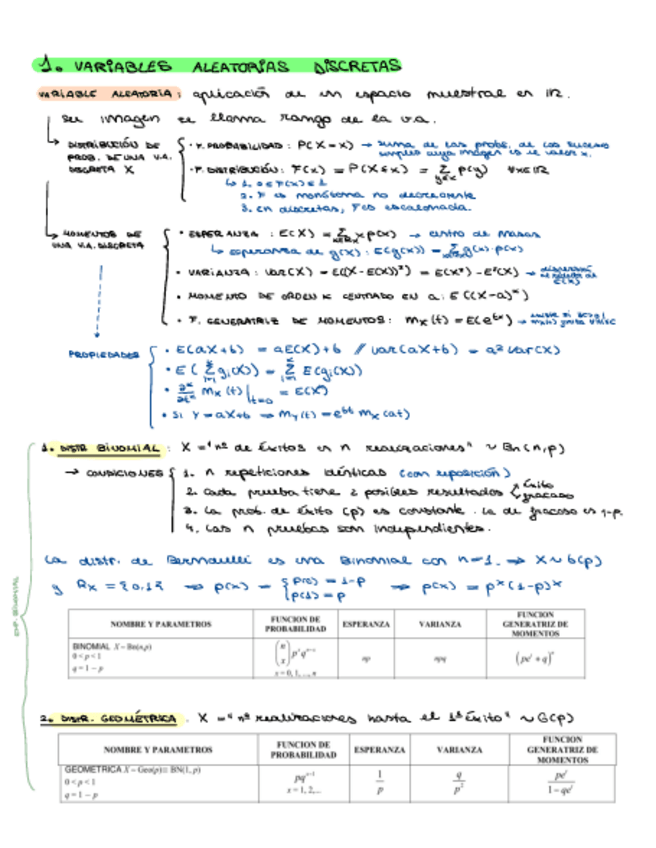 1. VARIABLES ALEATORIAS DISCRETAS
VARIABLE ALEATORIA: aplicación de un espacio muestral en IR.
su imagen se llama rango de la v.a.
DISTRIBUCIÓN DE PROB. DE UNA V.A. DISCRETA X
· F. PROBABILIDAD: P(X=x) → suma de las probs. de los sucesos simples cuya imagen es el valor x.
· F. DISTRIBUCIÓN: F(x) = P(X≤x) = Σ p(y) ∀x∈IR
y≤x
↳ 1. 0≤F(x)≤1
2. F es monótona no decreciente
3. en discretas, F es escalonada.
MOMENTOS DE UNA V.A. DISCRETA
· ESPERANZA: E(X) = Σ x p(x) → centro de masas
↳ esperanza de g(x): E(g(x)) = Σ g(x)·p(x)
· VARIANZA: Var(X) = E((X-E(X))²) = E(X²) - E²(X) → dispersión alrededor de E(X)
· MOMENTO DE ORDEN K CENTRADO EN a: E((X-a)^k)
· F. GENERATRIZ DE MOMENTOS: Mx(t) = E(e^tx)
PROPIEDADES
· E(aX+b) = aE(X)+b // Var(aX+b) = a² Var(X)
· E(Σ gi(X)) = Σ E(gi(X))
· ∂^k/∂t^k Mx(t)|t=0 = E(X^k)
· Si Y=aX+b ⇒ My(t) = e^bt Mx(at)
1. DISTR BINOMIAL: X = "nº de éxitos en n realizaciones" ~ Bn(n,p)
→ CONDICIONES
1. n repeticiones idénticas (con reposición)
2. Cada prueba tiene 2 posibles resultados
éxito
fracaso
3. La prob. de éxito (p) es constante. La de fracaso es 1-p.
4. Las n pruebas son independientes.
La distr. de Bernoulli es una Binomial con n=1. ⇒ X~b(p)
y Rx = {0,1} ⇒ p(x) = { p(0) = 1-p
p(1) = p
⇒ p(x) = p^x(1-p)^x
EXP. BINOMIAL
NOMBRE Y PARAMETROS FUNCION DE PROBABILIDAD ESPERANZA VARIANZA FUNCION GENERATRIZ DE MOMENTOS
BINOMIAL X~Bn(n,p)
0 < p < 1
q = 1 – p
(n x) p^x q^(n-x)
x = 0, 1, ..., n
np
npq
(pe^t + q)^n
2. DISTR. GEOMÉTRICA. X = "nº realizaciones hasta el 1º éxito" ~ G(p)
NOMBRE Y PARAMETROS FUNCION DE PROBABILIDAD ESPERANZA VARIANZA FUNCION GENERATRIZ DE MOMENTOS
GEOMETRICA X ~ Geo(p) ≡ BN(1, p)
0 < p < 1
q = 1 – p
pq^(x-1)
x = 1, 2,...
1/p
q/p²
pe^t / 1 - qe^t